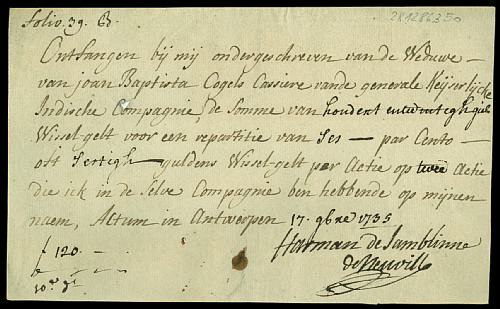 folio. 39. 
281286350
Ontfangen bij mij ondergeschreven van de Weduwe -
van joan Baptista Cogels Cassiere vande generale Keyserlijcke
Indische Compagnie, de Somme van hondert entwintigh gul
Wissel-gelt voor een repartitie van Ses - par Cento -
oft Sestigh - guldens Wissel-gelt per Actie op twee Actie
die ick in de Selve Compagnie ben hebbende op mijnen
naem, Actum in Antwerpen 17. 9bre 1735
f 120. -
Harman de Jamblinne
de Neuvill